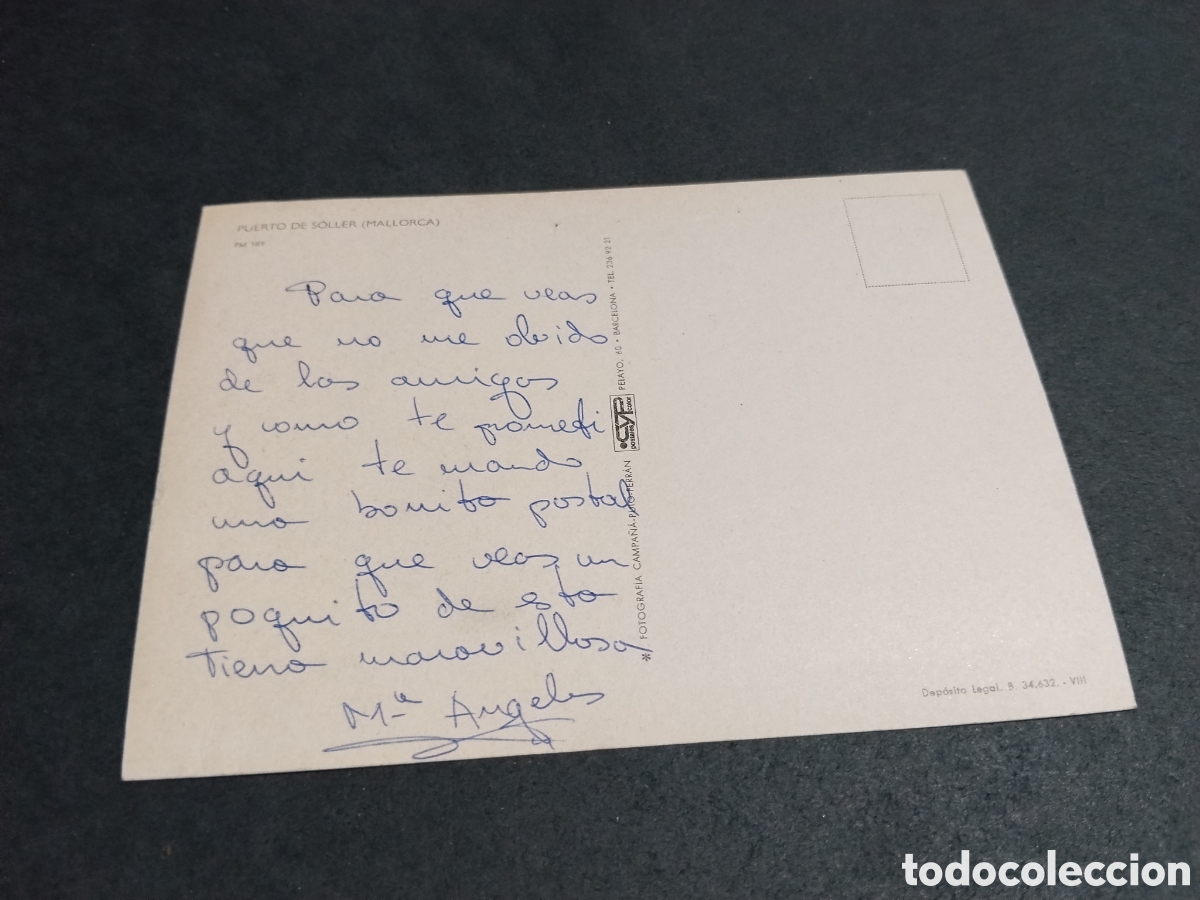 PUERTO DE SÓLLER (MALLORCA)
PM 189
Para que veas
que no me olvido
de los amigos
y como te prometi
aqui te mando
una bonita postal,
para que veas un
poquito de esta
tierra maravillosa
Mª Angeles
* FOTOGRAFÍA CAMPAÑÁ-PUIG-FERRÁN CYP postales color PELAYO, 60 • BARCELONA • TEL. 236 92 21
Depósito Legal. B. 34.632. - VIII
todocoleccion